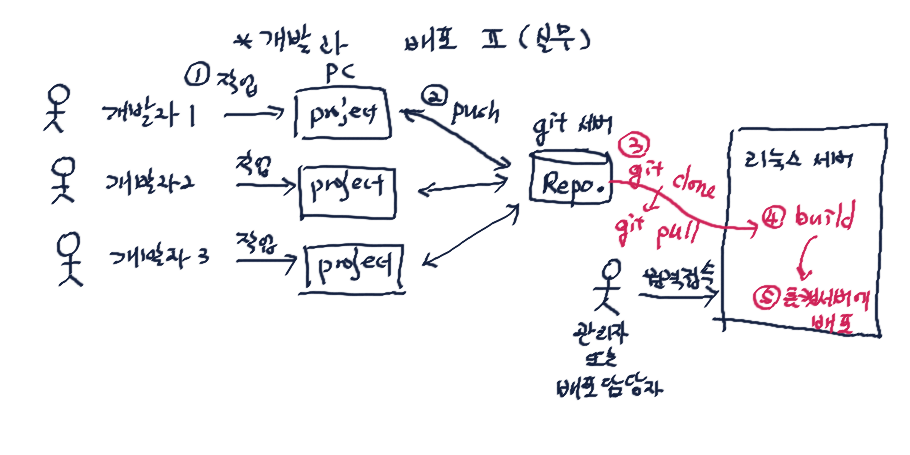 *개발과 배포 II (실무)
PC
① 작업
개발자 1
project
② push
개발자2
작업
project
개발자 3
작업
project
git 서버
Repo.
③ git clone
git pull
리눅스 서버
④ build
⑤ 톰캣서버에
배포
원격접속
관리자
또는
배포담당자